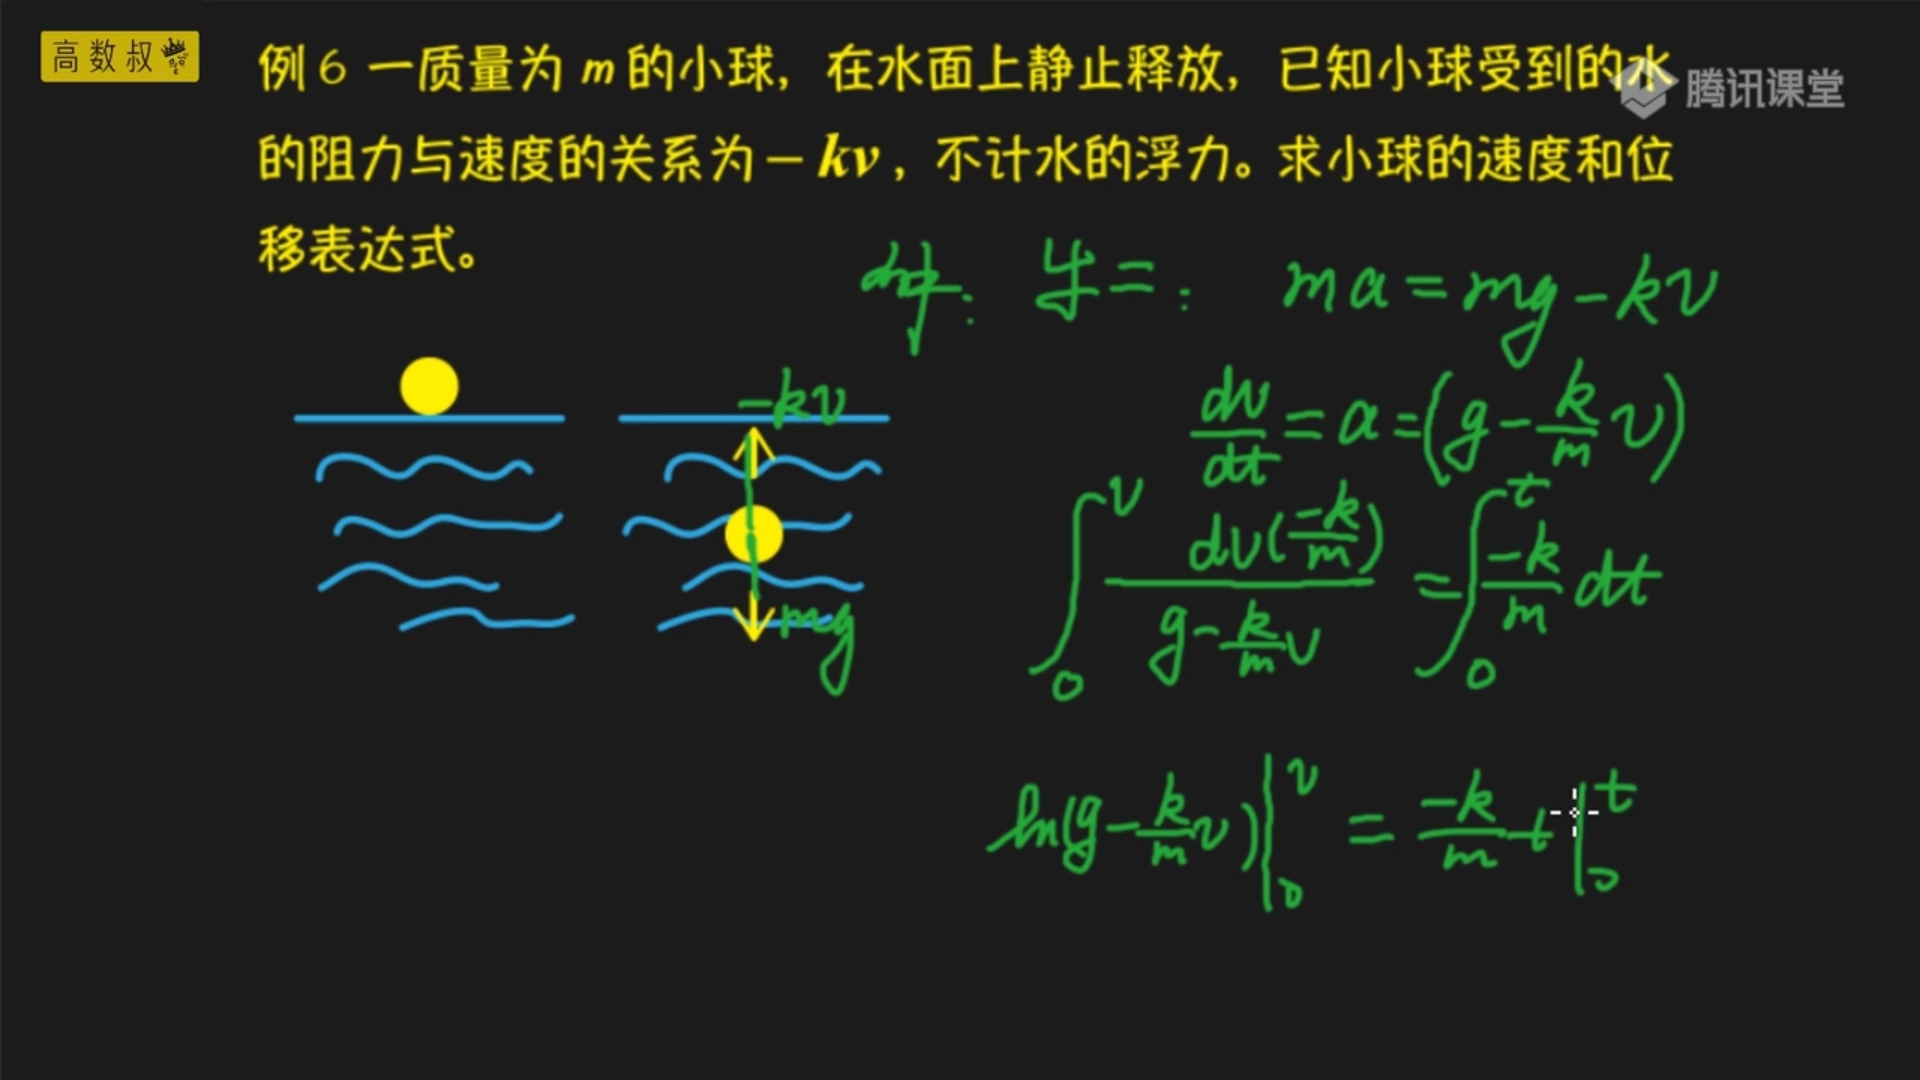 高数叔
例6 一质量为 m 的小球，在水面上静止释放，已知小球受到的水
腾讯课堂
的阻力与速度的关系为 − kv，不计水的浮力。求小球的速度和位
移表达式。
解： 牛二： ma = mg - kv
-kv
dv/dt = a = (g - k/m v)
∫₀ᵛ dv(-k/m) / (g - k/m v) = ∫₀ᵗ -k/m dt
mg
ln(g - k/m v)|₀ᵛ = -k/m t|₀ᵗ